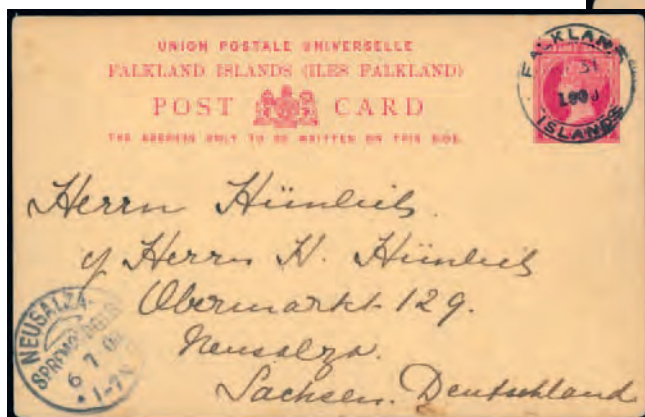 UNION POSTALE UNIVERSELLE
FALKLAND ISLANDS (ILES FALKLAND)
POST CARD
THE ADDRESS ONLY TO BE WRITTEN ON THIS SIDE.
FALKLAND
31
ISLANDS
Herrn
c/ Herrn H.
Obermarkt 129.
Neusalza.
Sachsen. Deutschland
NEUSALZA
6 7
1-7